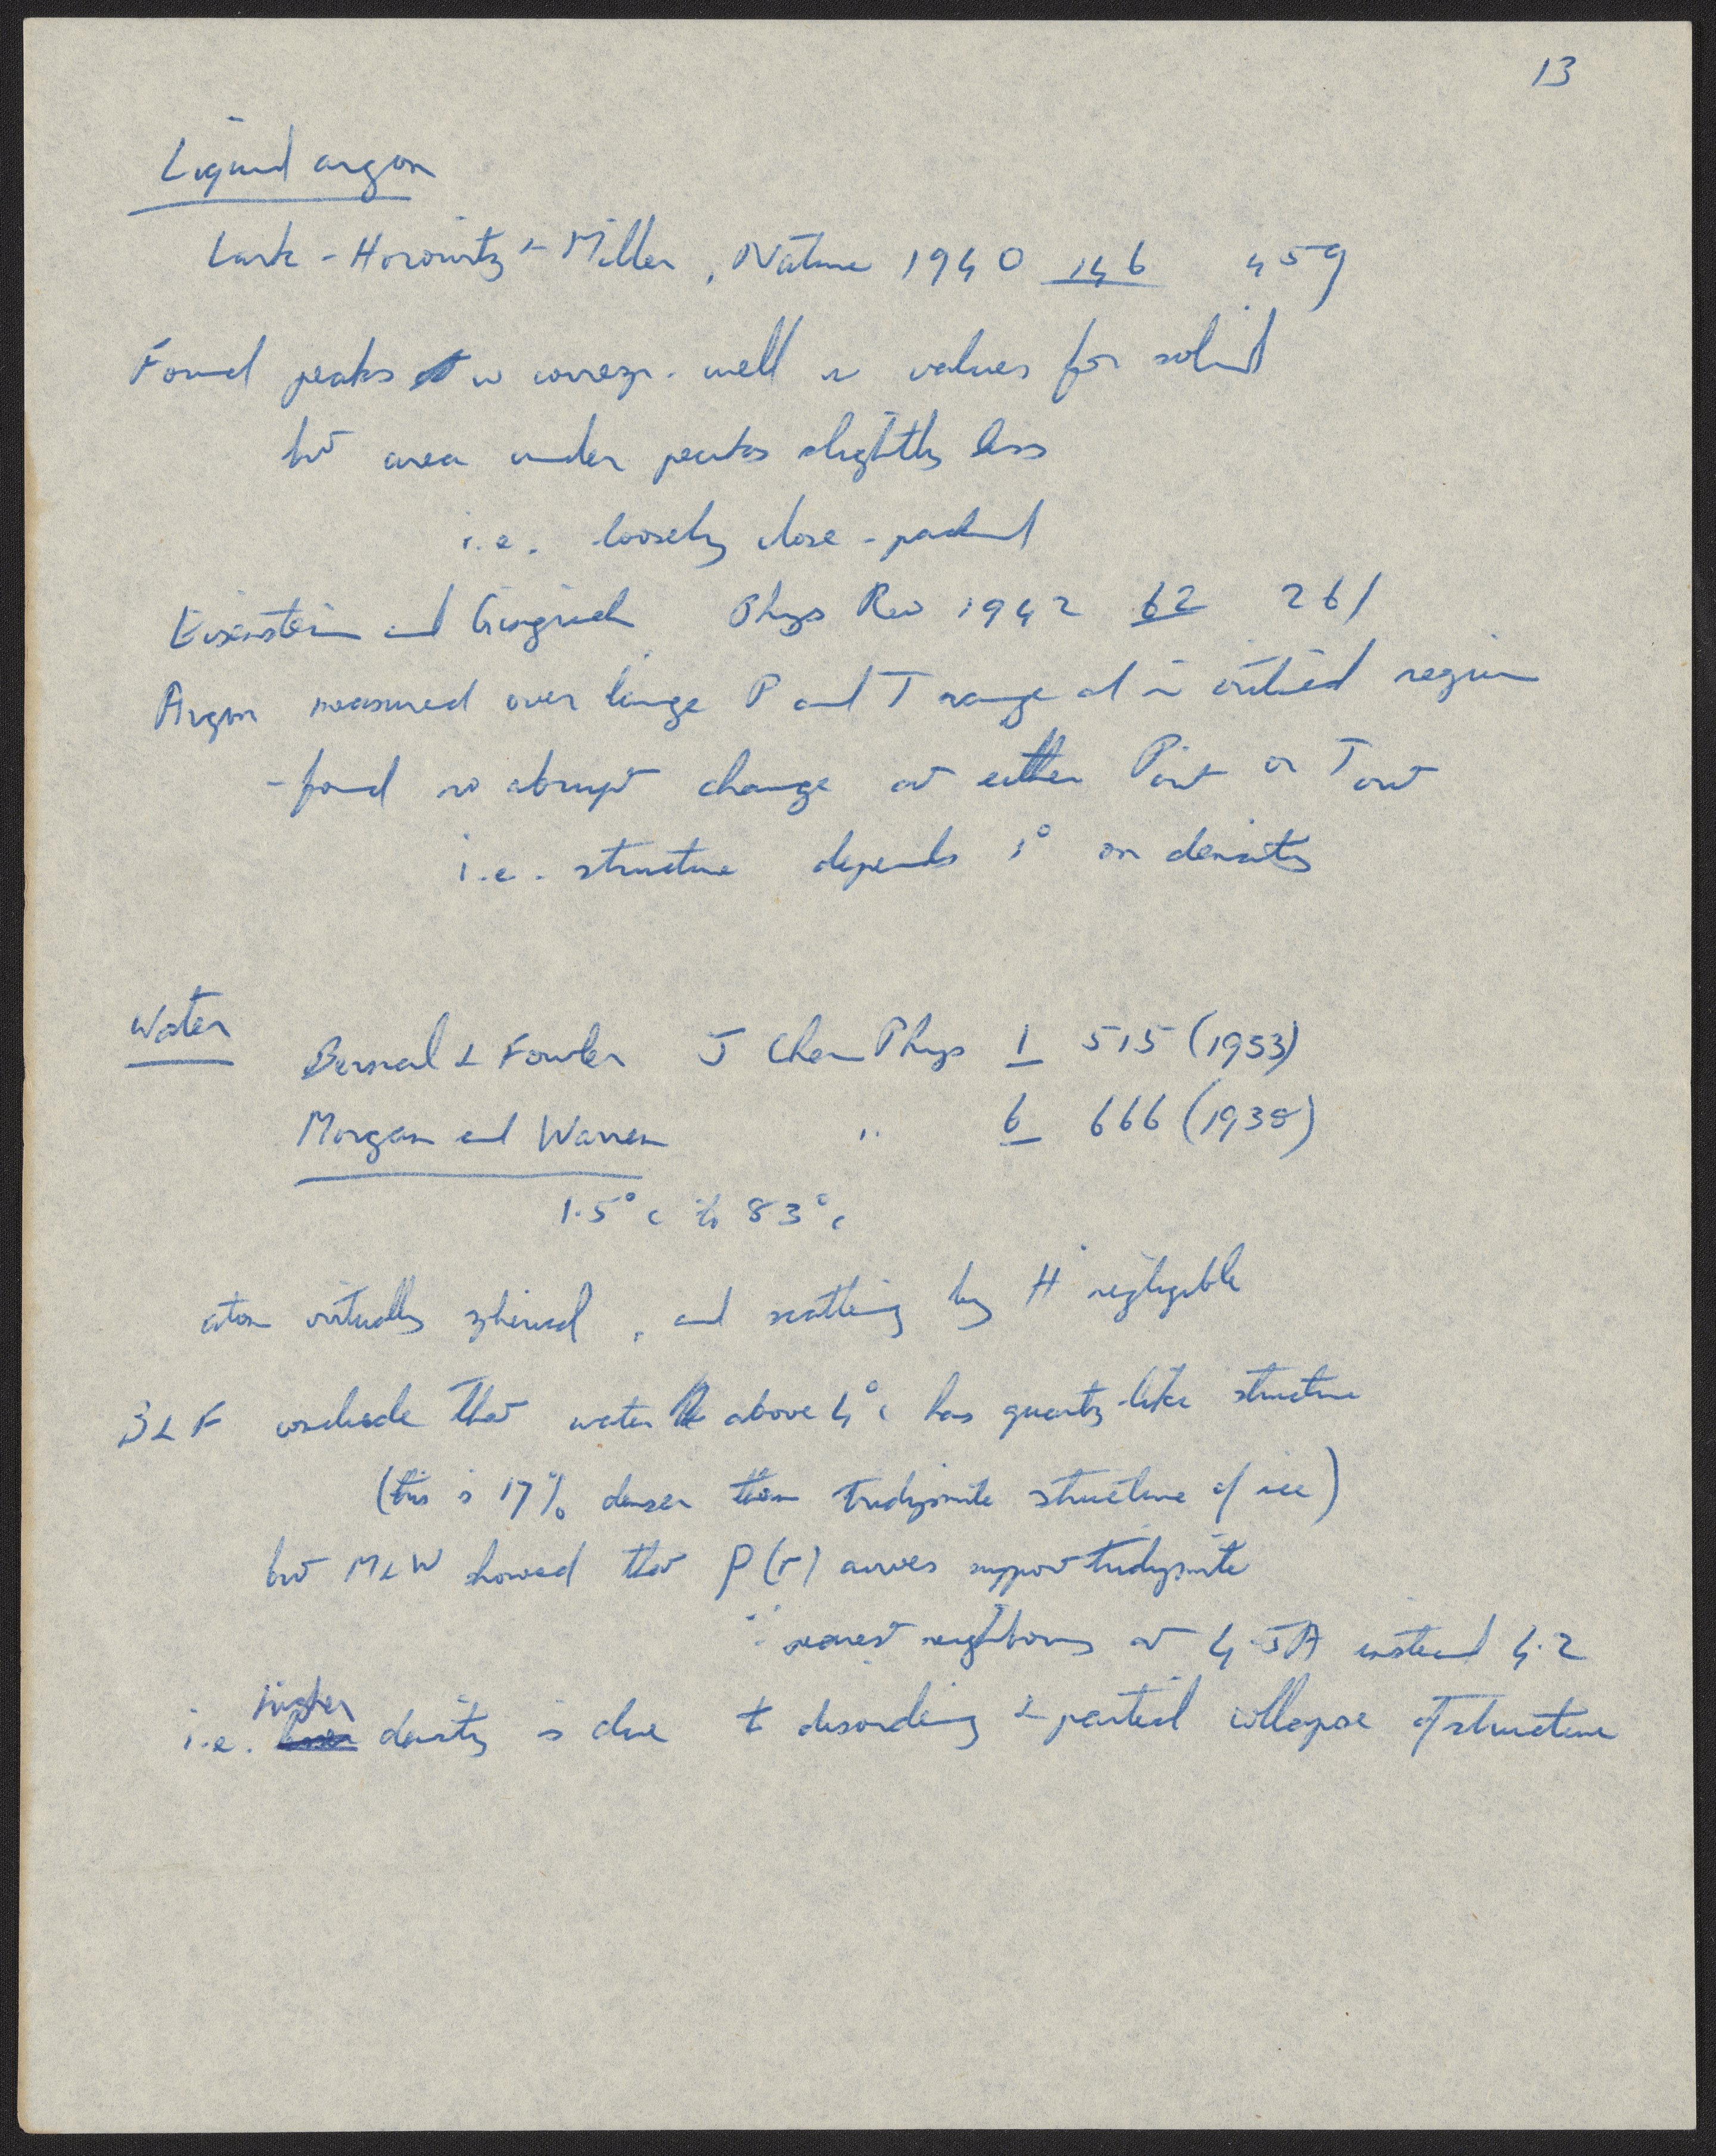 13
Liquid argon
Lark-Horowitz & Miller, Nature 1940 146 459
Found peaks w corresp. well w values for solid
but area under peaks slightly less
i.e. loosely close-packed
Eisenstein and Gingrich Phys Rev 1942 62 261
Argon measured over large P and T range and in critical region
- found no abrupt change at either Pcrit or Tcrit
i.e. structure depends 1° on density
Water
Bernal & Fowler J Chem Phys 1 515 (1933)
Morgan and Warren " 6 666 (1938)
1.5°c to 83°c
atom virtually spherical, and scattering by H negligible
B & F conclude that water above 4°c has quartz-like structure
(this is 17% denser than tridymite structure of ice)
but M & W showed that ρ(r) curves support tridymite
∵ nearest neighbours at 4.5A instead 4.2
i.e. higher density is due to disordering & partial collapse of structure